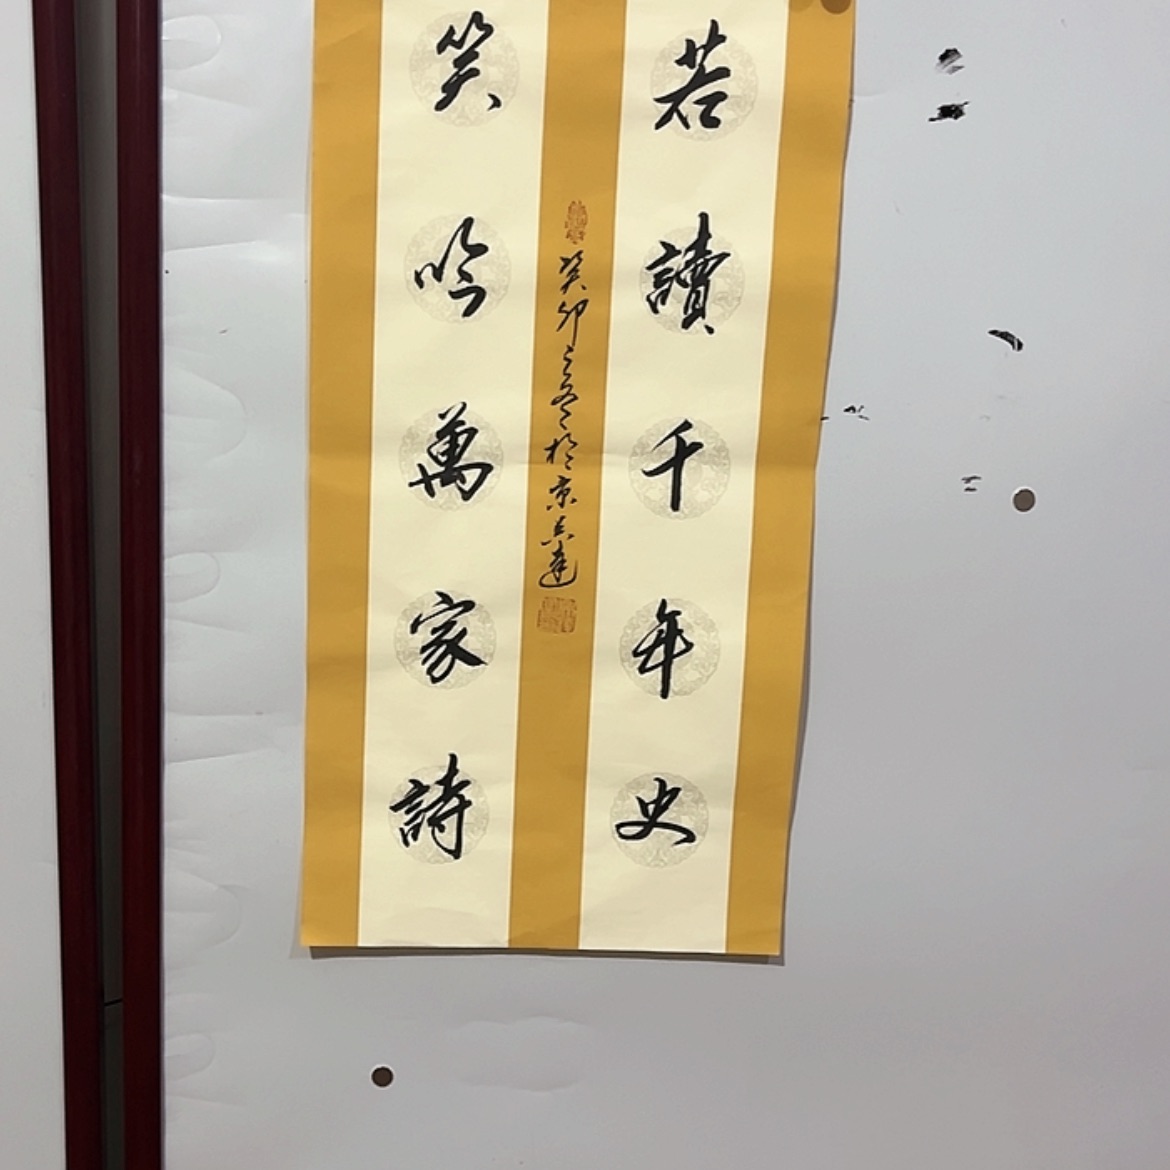 若讀千年史
笑吟萬家詩
癸卯之冬於京